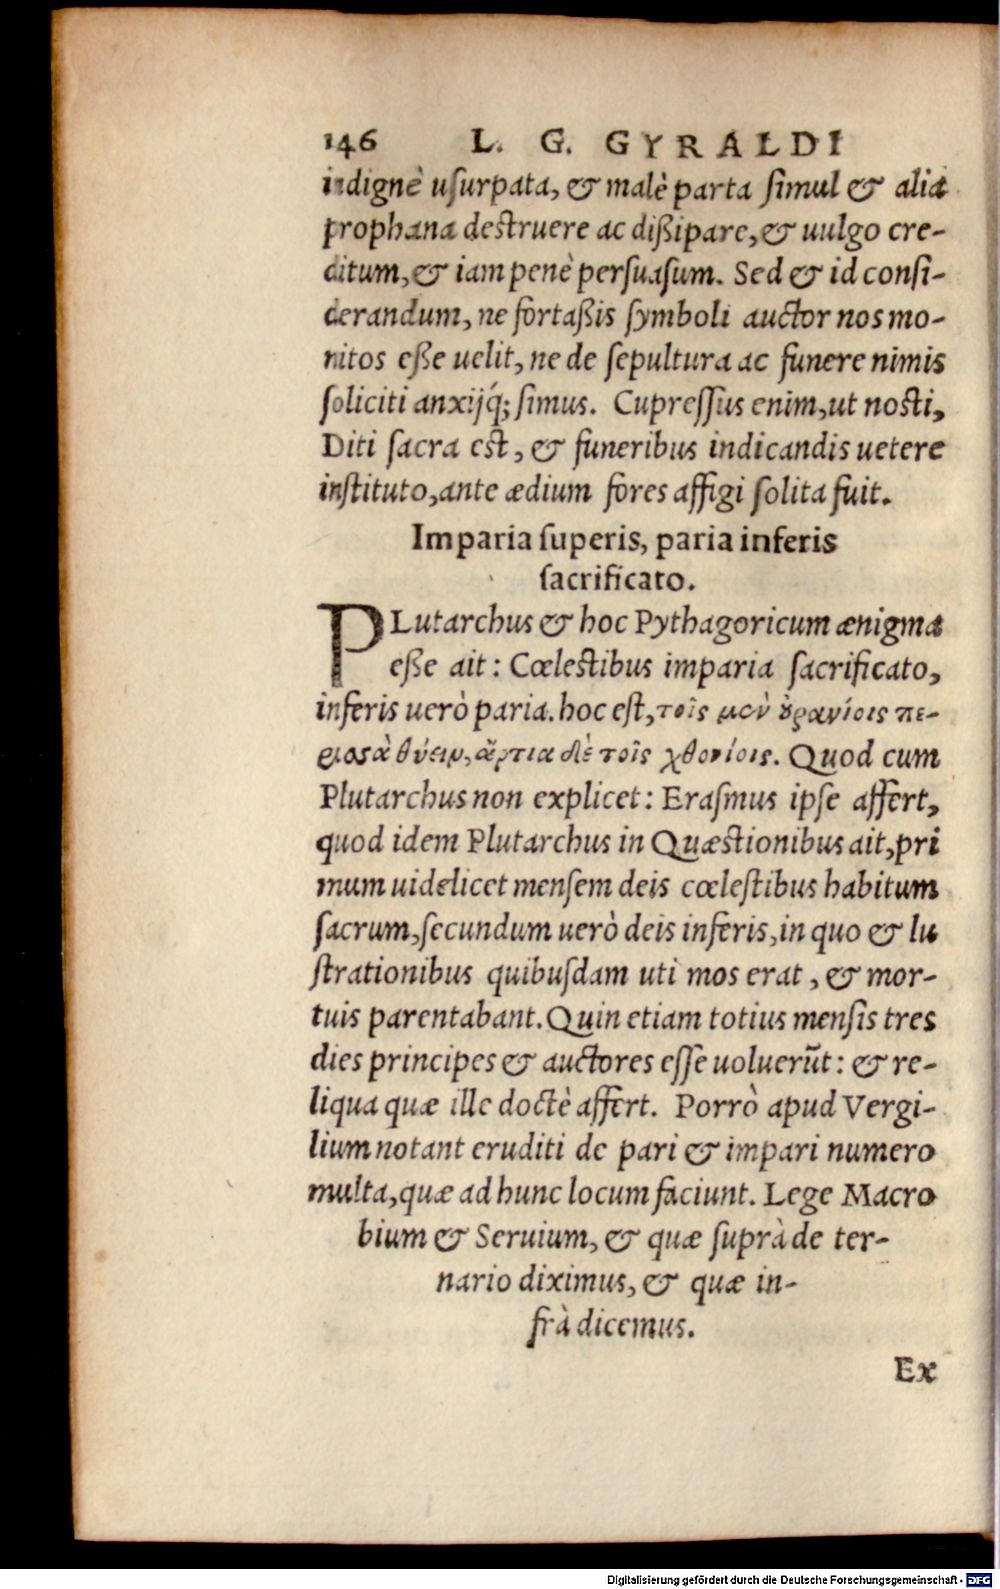 146 L. G. GYRALDI
indignè uſurpata, & malè parta ſimul & alia
prophana deſtruere ac dißipare, & uulgo cre-
ditum, & iam penè perſuaſum. Sed & id conſi-
derandum, ne fortaßis ſymboli auctor nos mo-
nitos eße uelit, ne de ſepultura ac funere nimis
ſoliciti anxijq́; ſimus. Cupreſſus enim, ut noſti,
Diti ſacra eſt, & funeribus indicandis uetere
inſtituto, ante ædium fores affigi ſolita fuit.
Imparia ſuperis, paria inferis
ſacrificato.
PLutarchus & hoc Pythagoricum ænigma
eße ait: Cœleſtibus imparia ſacrificato,
inferis uerò paria. hoc eſt, τοῖς μὲν ȣ̓ρανίοις πε-
ριοσὰ θύειν, ἄρτια δὲ τοῖς χθονίοις. Quod cum
Plutarchus non explicet: Eraſmus ipſe affert,
quod idem Plutarchus in Quæſtionibus ait, pri
mum uidelicet menſem deis cœleſtibus habitum
ſacrum, ſecundum uerò deis inferis, in quo & lu
ſtrationibus quibuſdam uti mos erat, & mor-
tuis parentabant. Quin etiam totius menſis tres
dies principes & auctores eſſe uoluerūt: & re-
liqua quæ ille doctè affert. Porrò apud Vergi-
lium notant eruditi de pari & impari numero
multa, quæ ad hunc locum faciunt. Lege Macro
bium & Seruium, & quæ ſuprà de ter-
nario diximus, & quæ in-
frà dicemus.
Ex
Digitalisierung gefördert durch die Deutsche Forschungsgemeinschaft - DFG